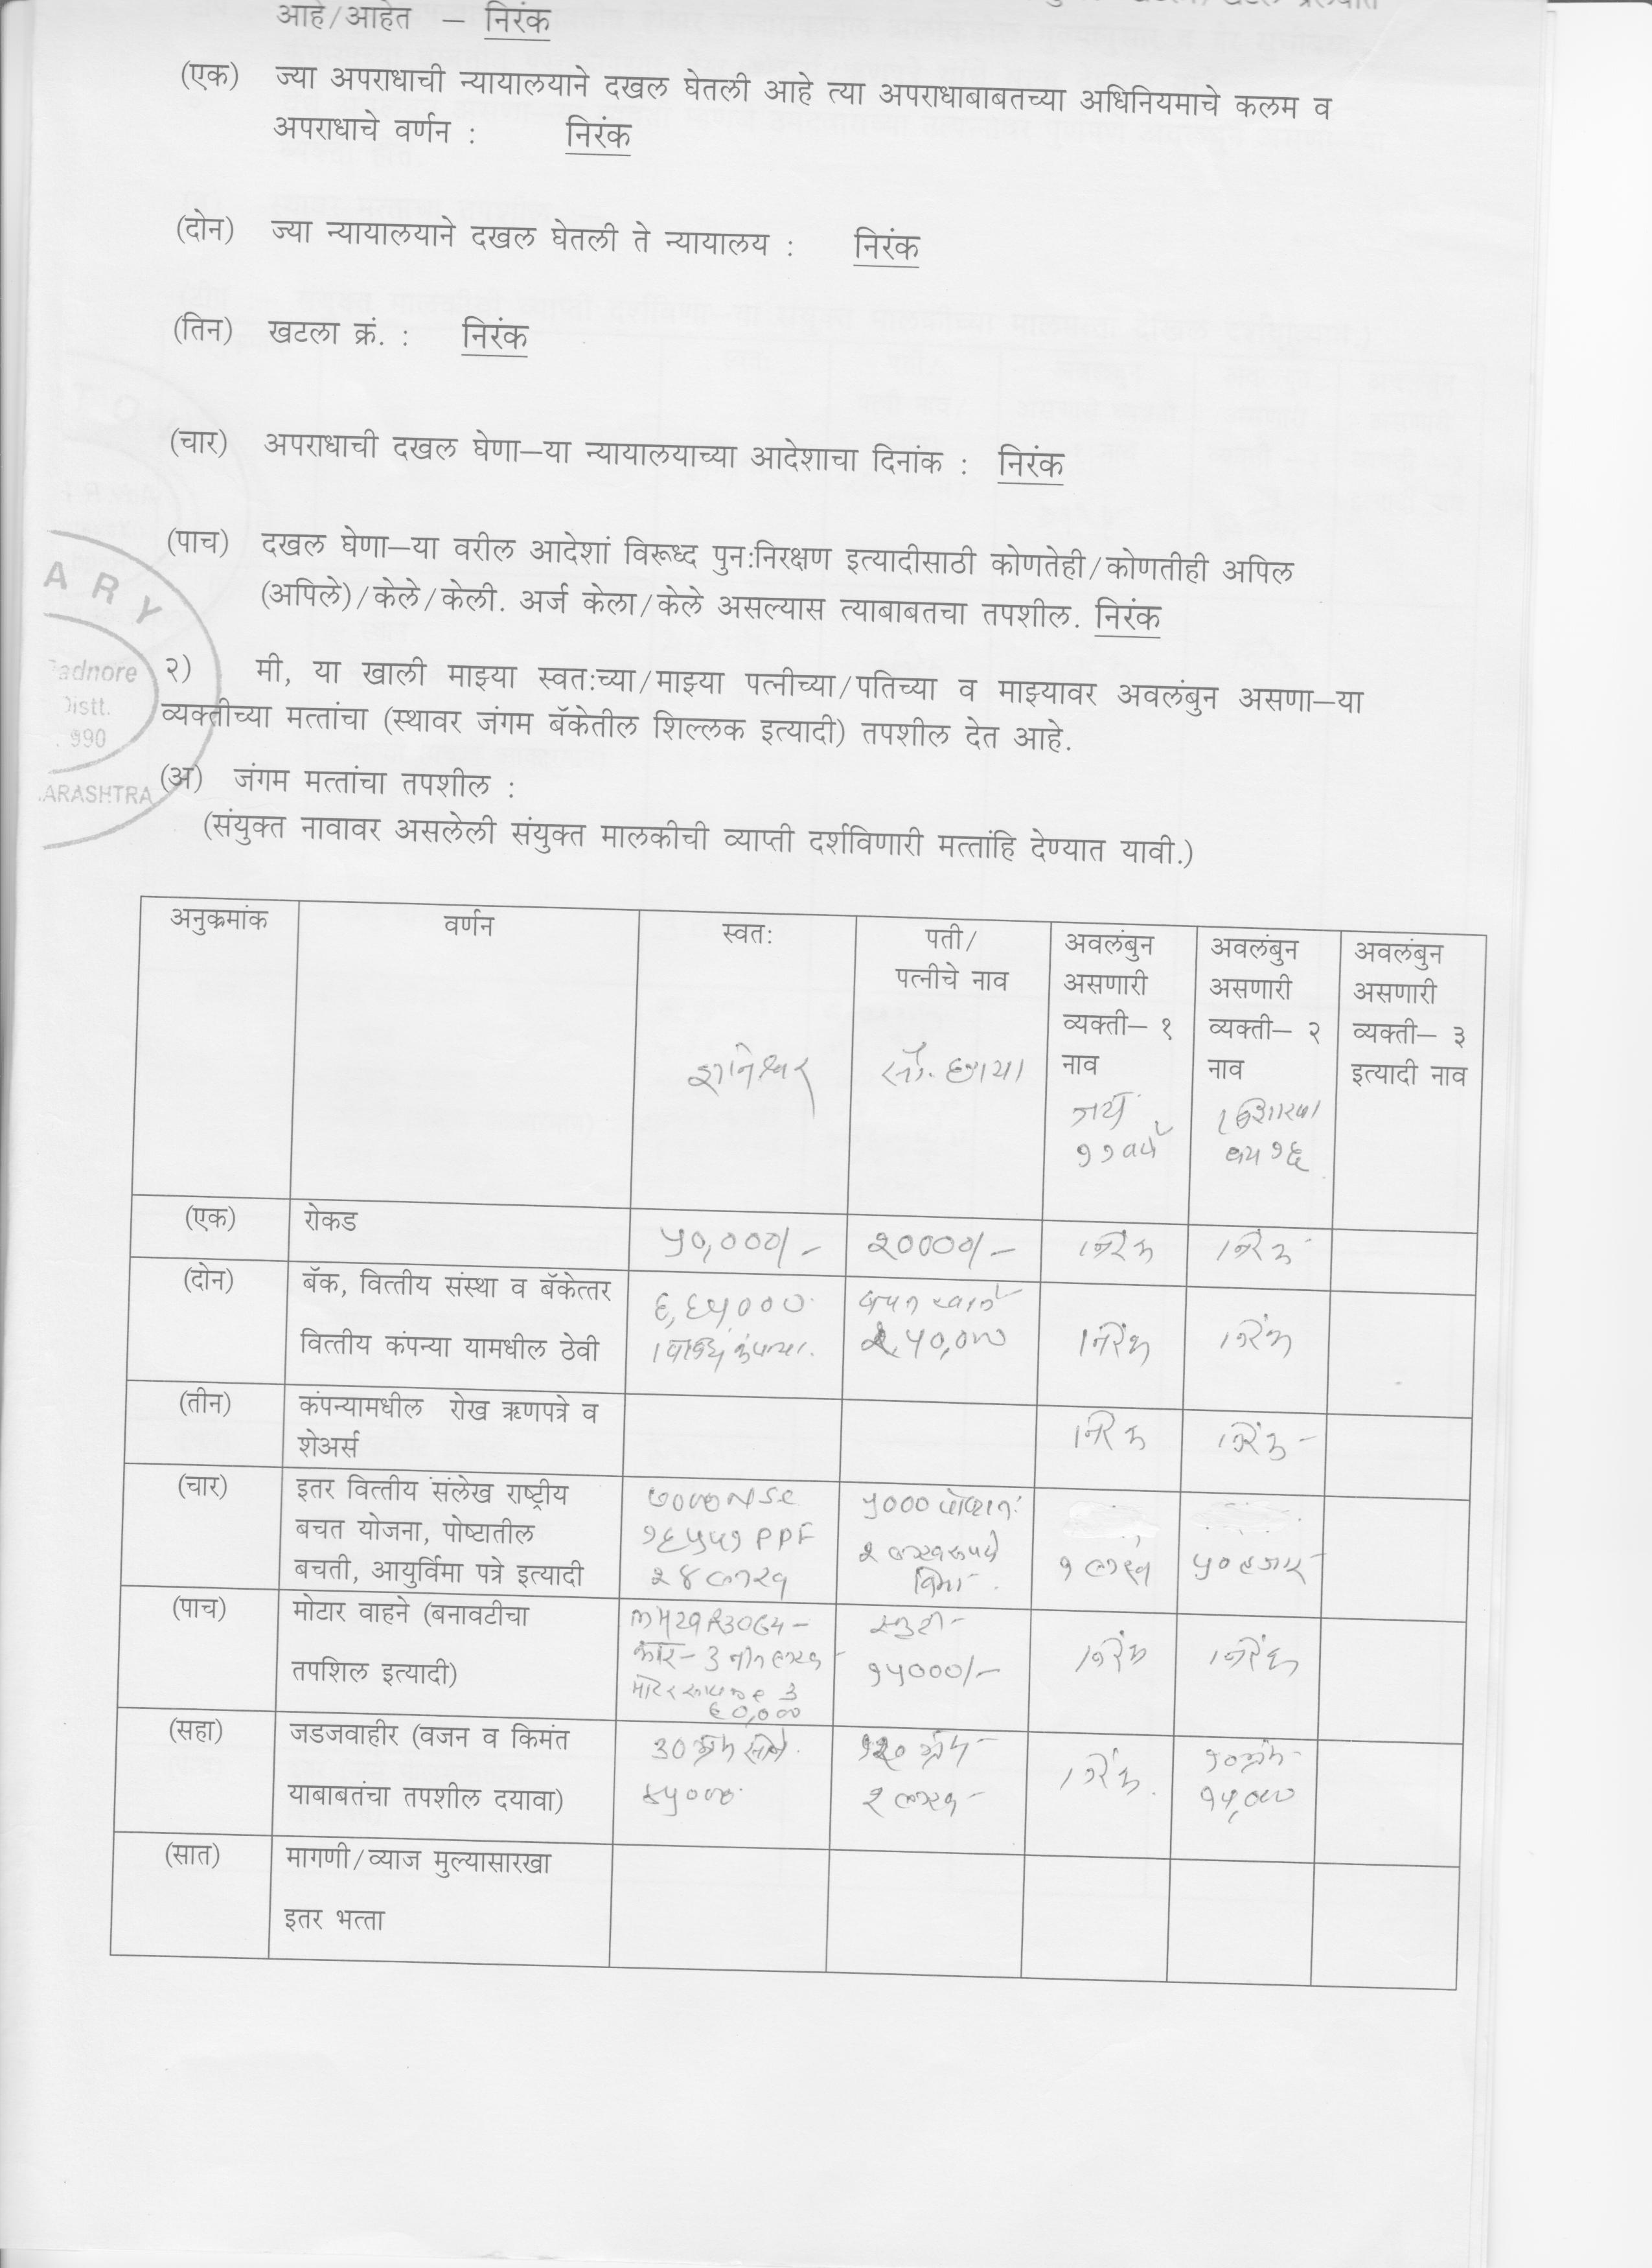 आहे/आहेत – निरंक
(एक) ज्या अपराधाची न्यायालयाने दखल घेतली आहे त्या अपराधाबाबतच्या अधिनियमाचे कलम व
अपराधाचे वर्णन : निरंक
(दोन) ज्या न्यायालयाने दखल घेतली ते न्यायालय : निरंक
(तिन) खटला क्रं. : निरंक
(चार) अपराधाची दखल घेणा–या न्यायालयाच्या आदेशाचा दिनांक : निरंक
(पाच) दखल घेणा–या वरील आदेशां विरूध्द पुनःनिरक्षण इत्यादीसाठी कोणतेही/कोणतीही अपिल
(अपिले)/केले/केली. अर्ज केला/केले असल्यास त्याबाबतचा तपशील. निरंक
ARY
adnore
Distt.
990
ARASHTRA
२) मी, या खाली माझ्या स्वतःच्या/माझ्या पत्नीच्या/पतिच्या व माझ्यावर अवलंबुन असणा–या
व्यक्तीच्या मत्तांचा (स्थावर जंगम बॅकेतील शिल्लक इत्यादी) तपशील देत आहे.
(अ) जंगम मत्तांचा तपशील :
(संयुक्त नावावर असलेली संयुक्त मालकीची व्याप्ती दर्शविणारी मत्तांहि देण्यात यावी.)
अनुक्रमांक
वर्णन
स्वतः
ज्ञानेश्वर
पती/
पत्नीचे नाव
सौ. छाया
अवलंबुन
असणारी
व्यक्ती– १
नाव
अवलंबुन
असणारी
व्यक्ती– २
नाव
वय १६
अवलंबुन
असणारी
व्यक्ती– ३
इत्यादी नाव
(एक) रोकड ५०,०००/– २००००/– निरंक निरंक
(दोन)
बॅक, वित्तीय संस्था व बॅकेत्तर
वित्तीय कंपन्या यामधील ठेवी
६,६५,०००
बचत खाते
२,५०,०००
निरंक
निरंक
(तीन)
कंपन्यामधील रोख ऋणपत्रे व
शेअर्स
निरंक
निरंक –
(चार)
इतर वित्तीय संलेख राष्ट्रीय
बचत योजना, पोष्टातील
बचती, आयुर्विमा पत्रे इत्यादी
७००० NSC
१६५५१ PPF
२४ लाख
५०००
२ लाख रुपये
विमा
१ लाख
५० हजार
(पाच)
मोटार वाहने (बनावटीचा
तपशिल इत्यादी)
MH29R3064 –
कार – ३ तीन लाख
६०,०००
स्कुटी –
१५०००/–
निरंक
निरंक
(सहा)
जडजवाहीर (वजन व किमंत
याबाबतंचा तपशील दयावा)
३० ग्रॅम सोने
४५०००
१२० ग्रॅम –
२ लाख –
निरंक
१० ग्रॅम –
१५,०००
(सात)
मागणी/व्याज मुल्यासारखा
इतर भत्ता